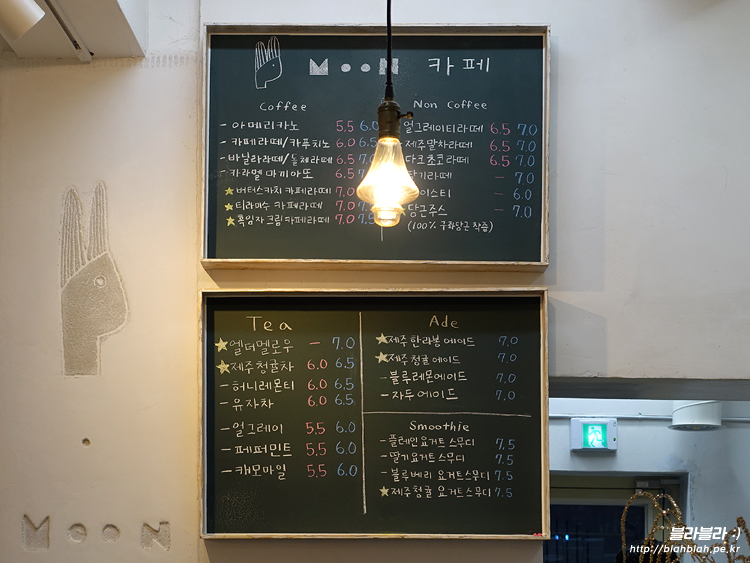 MOON 카페
Coffee
- 아메리카노 5.5 6.0
- 카페라떼/카푸치노 6.0 6.5
- 바닐라라떼/돌체라떼 6.5
- 카라멜 마끼아또 6.5
★ 버터스카치 카페라떼 7.0
★ 티라미수 카페라떼 7.0
★ 흑임자 크림 카페라떼 7.0
Non Coffee
얼그레이티라떼 6.5 7.0
제주말차라떼 6.5 7.0
다크초코라떼 6.5 7.0
딸기라떼 - 7.0
아이스티 - 6.0
당근주스 - 7.0
(100% 구좌당근 착즙)
Tea
★ 엘더멜로우 - 7.0
★ 제주청귤차 6.0 6.5
- 허니레몬티 6.0 6.5
- 유자차 6.0 6.5
- 얼그레이 5.5 6.0
- 페퍼민트 5.5 6.0
- 캐모마일 5.5 6.0
Ade
★ 제주한라봉에이드 7.0
★ 제주청귤에이드 7.0
- 블루레몬에이드 7.0
- 자두에이드 7.0
Smoothie
- 플레인요거트스무디 7.5
- 딸기요거트스무디 7.5
- 블루베리 요거트스무디 7.5
★ 제주청귤 요거트스무디 7.5
MOON
블라블라 :)
http://blahblah.pe.kr